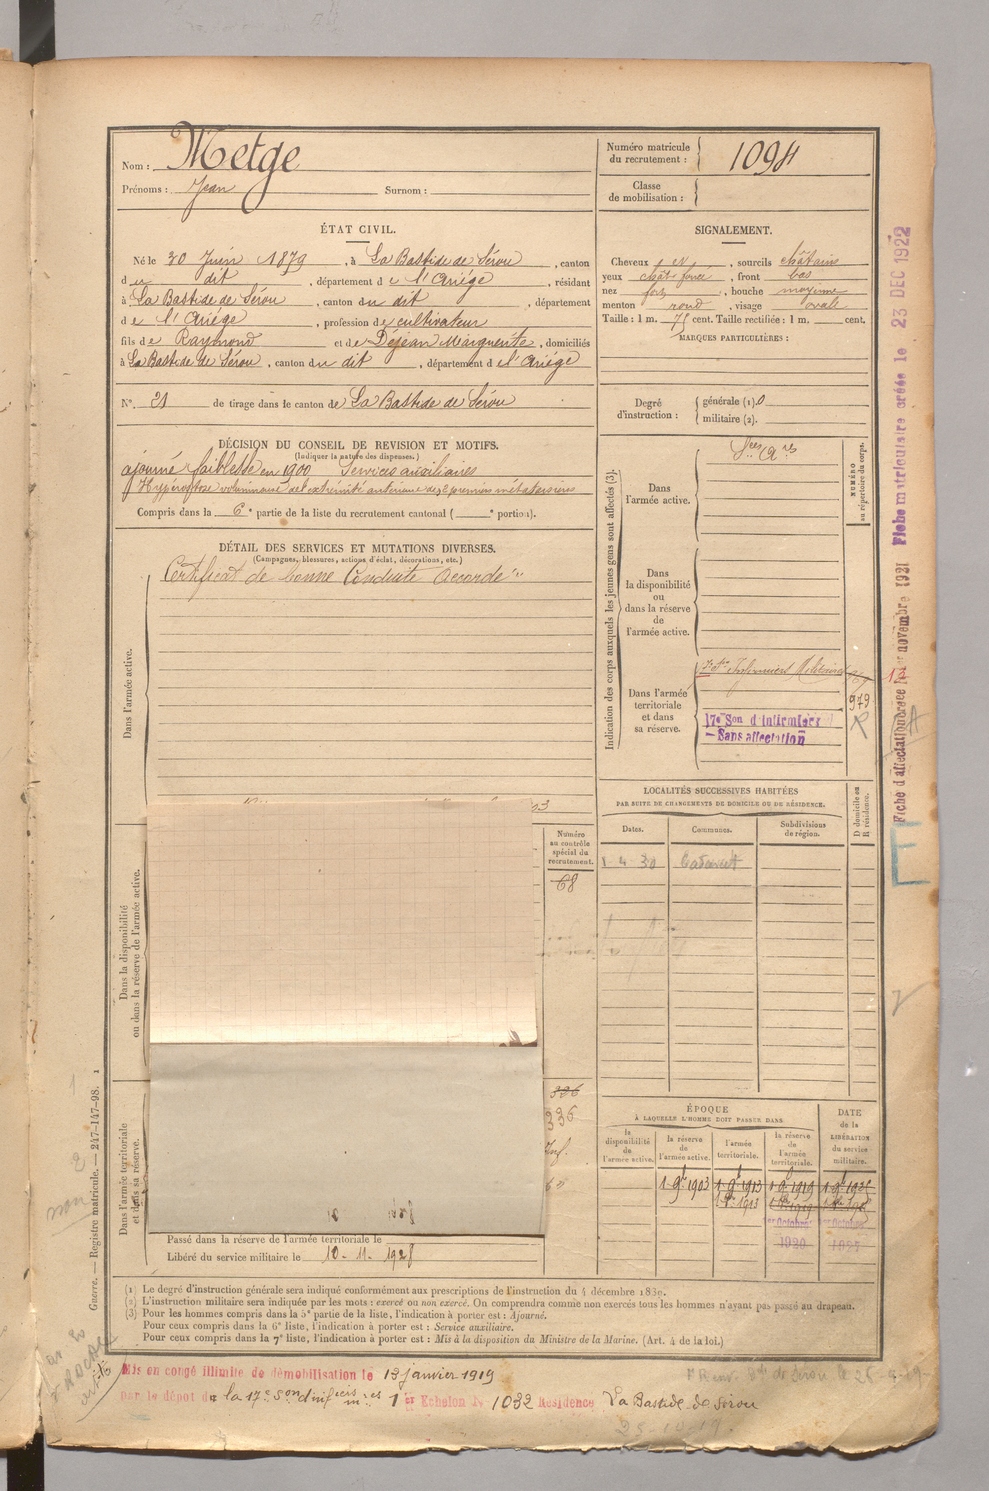 Nom : Metge
Prénoms : Jean Surnom :
Numéro matricule du recrutement : 1098
Classe de mobilisation :
ÉTAT CIVIL.
Né le 30 Juin 1879, à La Bastide de Sérou, canton
du dit, département de l'Ariége, résidant
à La Bastide de Sérou, canton du dit, département
de l'Ariége, profession de cultivateur
fils de Raymond et de Déjean Marguerite, domiciliés
à La Bastide de Sérou, canton du dit, département de l'Ariége
N°. 21 de tirage dans le canton de La Bastide de Sérou
DÉCISION DU CONSEIL DE REVISION ET MOTIFS.
(Indiquer la nature des dispenses.)
ajourné faiblesse en 1900 Services auxiliaires
Hypérostose volumineuse de l'extrémité antérieure des 2 premiers métatarsiens
Compris dans la 6e partie de la liste du recrutement cantonal ( e portion).
DÉTAIL DES SERVICES ET MUTATIONS DIVERSES.
(Campagnes, blessures, actions d'éclat, décorations, etc.)
Certificat de bonne Conduite Accordé
Dans l'armée active.
Dans la disponibilité ou dans la réserve de l'armée active.
Dans l'armée territoriale et dans sa réserve.
Numéro au contrôle spécial du recrutement.
68
336
336
Passé dans la réserve de l'armée territoriale le
Libéré du service militaire le 10-11-1928
SIGNALEMENT.
Cheveux et, sourcils châtains
yeux chât foncé, front bas
nez fort, bouche moyenne
menton rond, visage ovale
Taille : 1 m. 75 cent. Taille rectifiée : 1 m. cent.
MARQUES PARTICULIÈRES :
Degré d'instruction :
générale (1). 0
militaire (2).
Indication des corps auxquels les jeunes gens sont affectés (3).
Dans l'armée active.
Dans la disponibilité ou dans la réserve de l'armée active.
Dans l'armée territoriale et dans sa réserve.
NUMÉRO au répertoire du corps.
Infirmiers Militaires
979
R
17e Son d'infirmiers
- Sans affectation
LOCALITÉS SUCCESSIVES HABITÉES
PAR SUITE DE CHANGEMENTS DE DOMICILE OU DE RÉSIDENCE.
Dates. Communes. Subdivisions de région. D domicile ou R résidence.
1 4 30 Cadarcet
ÉPOQUE
À LAQUELLE L'HOMME DOIT PASSER DANS
la disponibilité de l'armée active.
la réserve de l'armée active.
l'armée territoriale.
la réserve de l'armée territoriale.
DATE de la LIBÉRATION du service militaire.
1 9bre 1903 1 9bre 1913 1 9bre 1919 1 9bre 1925
er Octobre
1920
1927
(1) Le degré d'instruction générale sera indiqué conformément aux prescriptions de l'instruction du 4 décembre 1830.
(2) L'instruction militaire sera indiquée par les mots : exercé ou non exercé. On comprendra comme non exercés tous les hommes n'ayant pas passé au drapeau.
(3) Pour les hommes compris dans la 5e partie de la liste, l'indication à porter est : Ajourné.
Pour ceux compris dans la 6e liste, l'indication à porter est : Service auxiliaire.
Pour ceux compris dans la 7e liste, l'indication à porter est : Mis à la disposition du Ministre de la Marine. (Art. 4 de la loi.)
Guerre. — Registre matricule. — 247-147-98. 1
Fiche d'affectation créée le 1er novembre 1921 Fiche matriculaire créée le 23 DEC 1922
Mis en congé illimité de démobilisation le 13 janvier 1919
Par le dépôt de la 17e Son d'infirmiers 1er Echelon No 1032 Résidence La Bastide de Sérou
25-10-19.